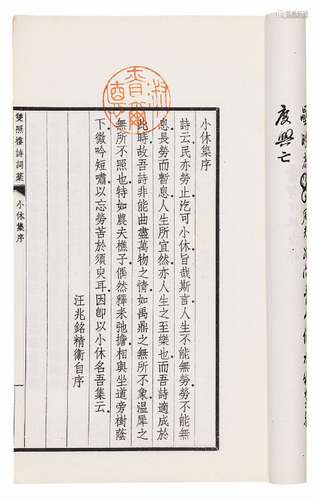 度興亡
小休集序
詩云民亦勞止汔可小休旨哉斯言人生不能無勞勞不能無
息長勞而暫息人生所宜然亦人生之至樂也而吾詩適成於
此時故吾詩非能曲盡萬物之情如禹鼎之無所不象溫犀之
無所不照也特如農夫樵子偶然釋耒弛擔相與坐道旁樹蔭
下微吟短嘯以忘勞苦於須臾耳因即以小休名吾集云
汪兆銘精衛自序
雙照樓詩詞藁 小休集序 一